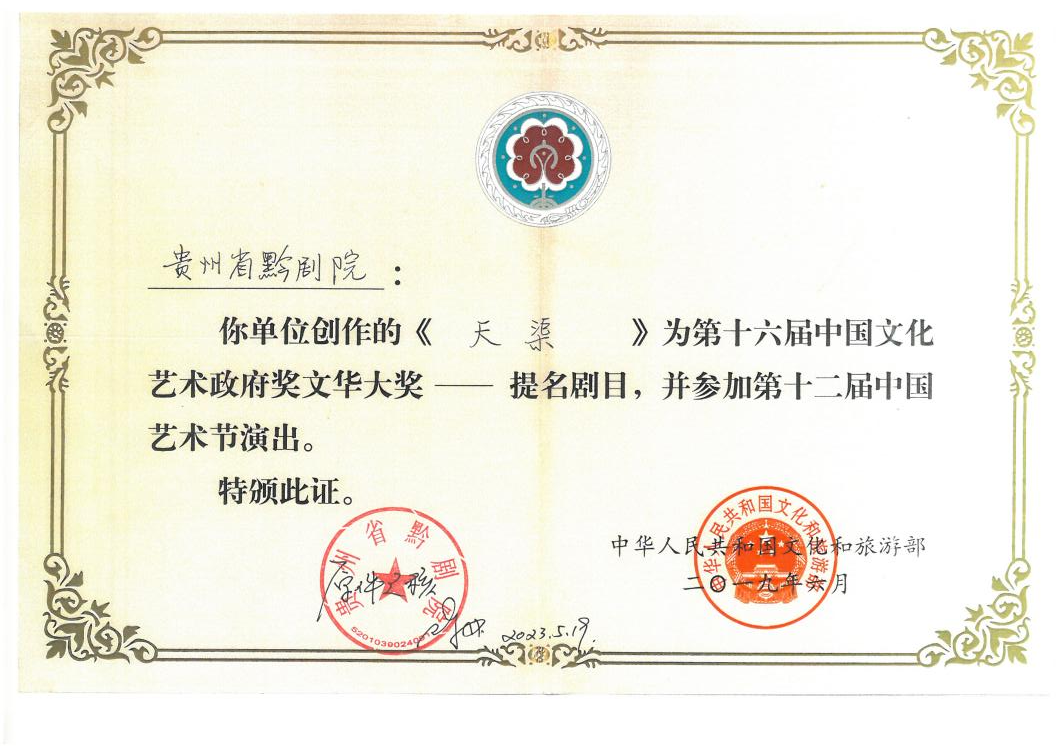 贵州省黔剧院：
你单位创作的《 天渠 》为第十六届中国文化
艺术政府奖文华大奖 —— 提名剧目，并参加第十二届中国
艺术节演出。
特颁此证。
中华人民共和国文化和旅游部
二〇一九年 月
中华人民共和国文化和旅游部
贵州省黔剧院
原件已核
2023.5.19.